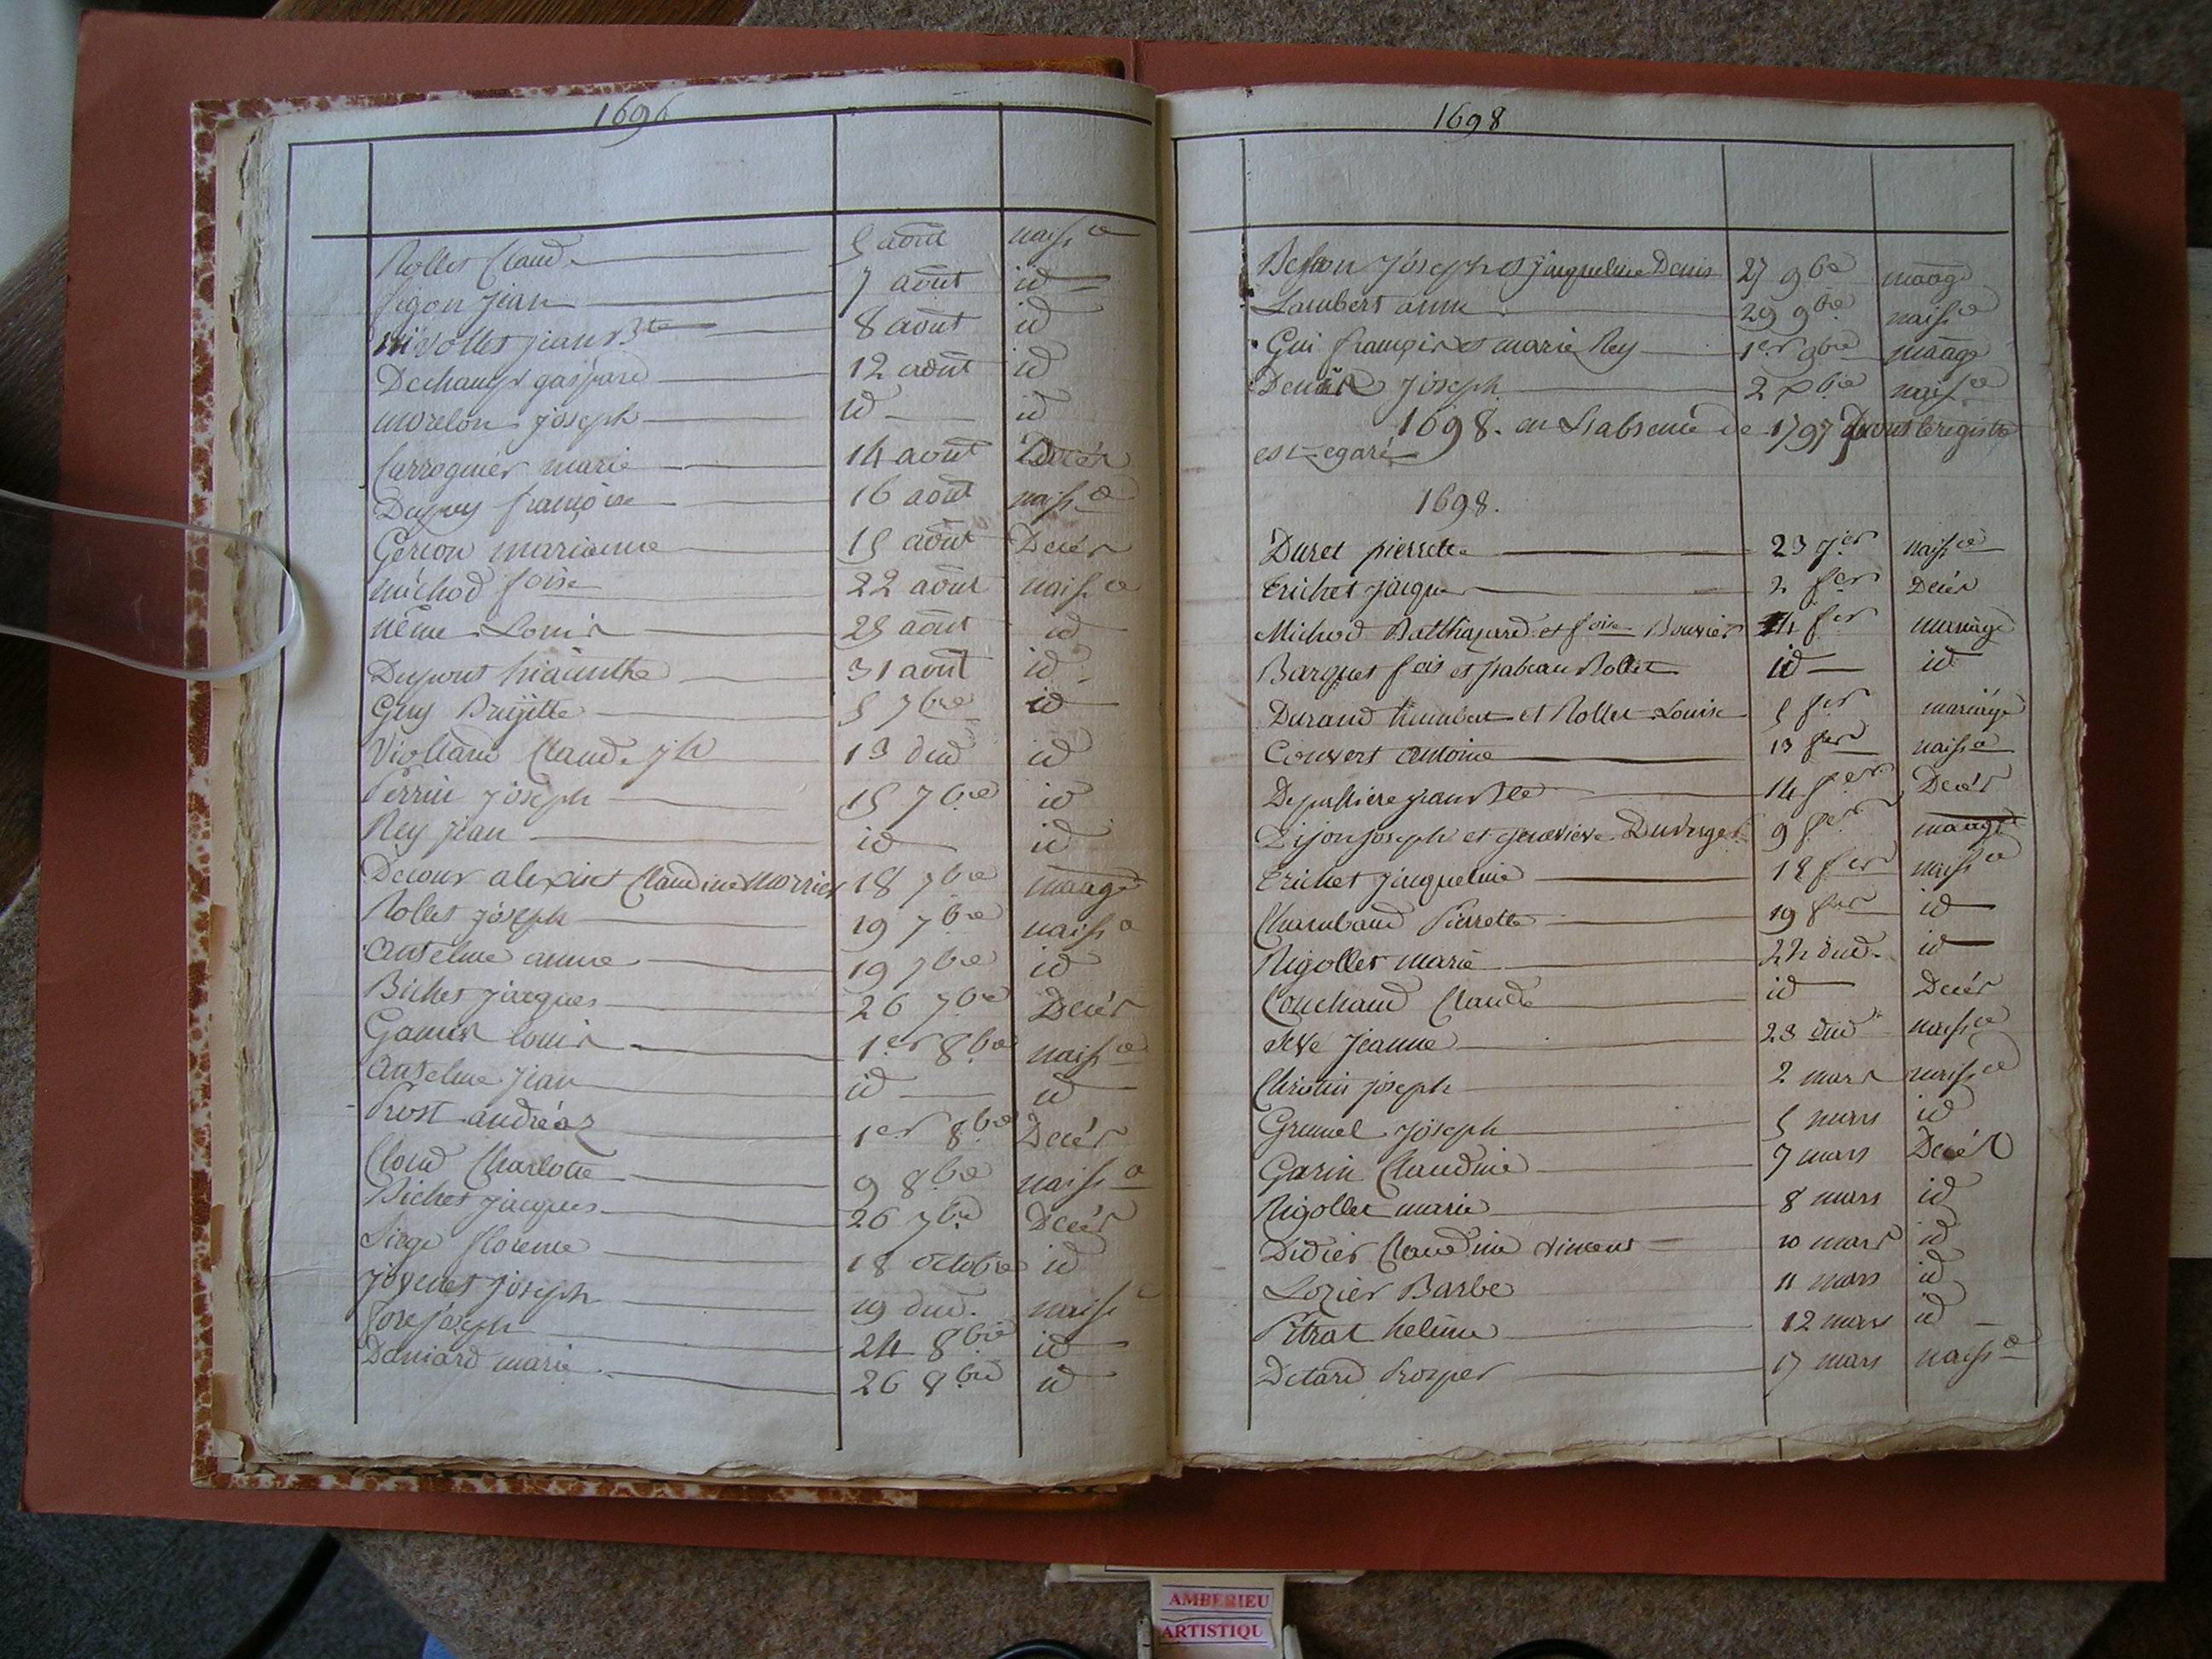 1696
Rollet Claud. 5 août naissce
figon jean 7 août id
jean Bte 8 août id
Dechamps gaspard 12 août id
morelon joseph id id
Carroguier marie 14 août Décés
Dupuy françoise 16 août naissce
Gerion marianne 15 août Décés
michod foise 22 août naissce
même Louis 25 août id
Dupont hiacinthe 31 août id
Guy Brijitte 5 7bre id
Violland Claude jh 13 dud id
Perrin joseph 15 7bre id
Rey jean id id
Decour alexis et Claudine morrier 18 7bre maage
Rollet joseph 19 7bre naissce
anselme anne 19 7bre id
Bichet jacques 26 7bre Décés
Louis 1er 8bre naissce
anselme jean id id
Prost andréaz 1er 8bre Décés
Cloud Charlotte 9 8bre naissce
Bichet jacques 26 7bre Décés
florence 18 octobre id
joyenet joseph 19 dud. naissce
joseph 24 8bre id
Daniard marie 26 8bre id
1698
Besson joseph et jacqueline Denis 27 9bre maage
Lambert anne 29 9bre naissce
Gui françois et marie Rey 1er 9bre maage
Joseph 2 xbre naissce
1698. en L'absence de 1797 Dont le registre
est egaré
1698.
Duret pierrette 23 jer naissce
Trichet jacque 2 fer Décés
Michod Balthazard et foise Bouvier 4 fer mariage
Barquet fois et isabeau Rollet id id
Durand humbert et Rollet Louise 5 fer mariage
Convert antoine 13 fer naissce
jean Bte 14 fer Décés
Lijon joseph et genevieve Duverger 9 fer maage
Trichet jacqueline 18 fer naissce
Chambaud Pierrette 19 fer id
Rigollet marie 22 dud. id
Couchaud Claude id Décés
Seve Jeanne 23 dud naissce
Chrotin joseph 2 mars naissce
Grumel joseph 5 mars id
Garin Claudine 7 mars Décés
Rigollet marie 8 mars id
Didier Claudine vincent 10 mars id
Lozier Barbe 11 mars id
Pitrat heleine 12 mars id
Detard Prosper 17 mars naissce
AMBERIEU
ARTISTIQU